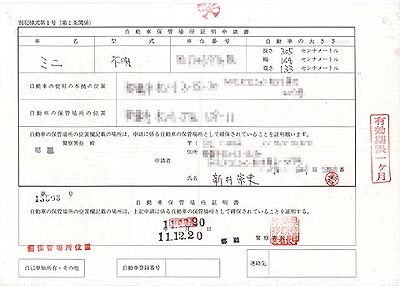 別記様式第1号(第1条関係)
自動車保管場所証明申請書
車名 型式 車台番号 自動車の大きさ
ミニ 不明 長さ 305 センチメートル
幅 144 センチメートル
高さ 133 センチメートル
自動車の使用の本拠の位置
自動車の保管場所の位置
自動車の保管場所の位置欄記載の場所は、申請に係る自動車の保管場所として確保されていることを証明願います。
警察署長 殿
住所
申請者
氏名 新井崇史
第 13098 号
自動車保管場所証明書
自動車の保管場所の位置欄記載の場所は、上記申請に係る自動車の保管場所として確保されていることを証明する。
11.12.20
11.12.20
警察署長
有効期限一ヶ月
保管場所位置
自己単独所有・その他
自動車登録番号
連絡先